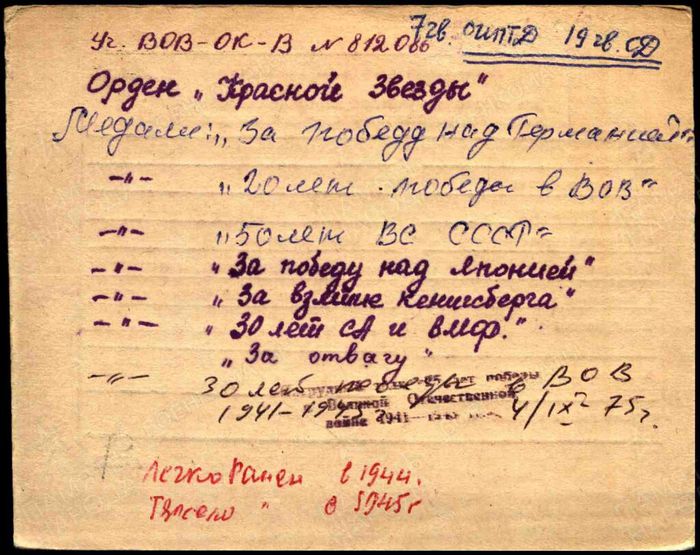 7 гв. ОИПТД 19 гв. СД
Уч. ВОВ-ОК-В № 812086
Орден „Красной Звезды"
Медали: „За победу над Германией"
-"- „20 лет победы в ВОВ"
-"- „50 лет ВС СССР"
-"- „За победу над Японией"
-"- „За взятие Кенигсберга"
-"- „30 лет СА и ВМФ."
„За отвагу"
-"- 30 лет победы в ВОВ
лет победы
1941-1945 4/IX 75 г.
Великой Отечественной
войне 1941
Легко ранен в 1944 г.
Тяжело " в 1945 г